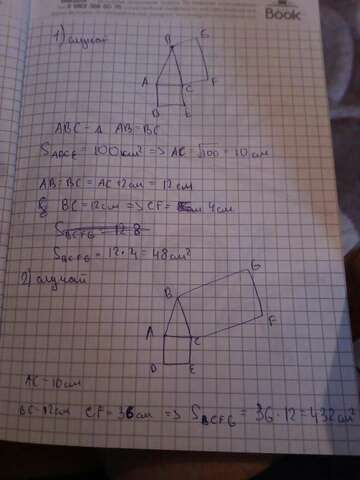 Book
1) случай
B
G
A
C
F
D
E
ABC = Δ AB = BC
S_ADCE = 100 cм² => AC = √100 = 10 cм
AB = BC = AC + 2 cм = 12 cм
BC = 12 cм => CF = 4 cм
S_BCFG = 12·8
S_BCFG = 12·4 = 48 cм²
2) случай
G
B
F
A
C
D
E
AC = 10 cм
BC = 12 cм CF = 36 cм => S_BCFG = 36·12 = 432 cм²